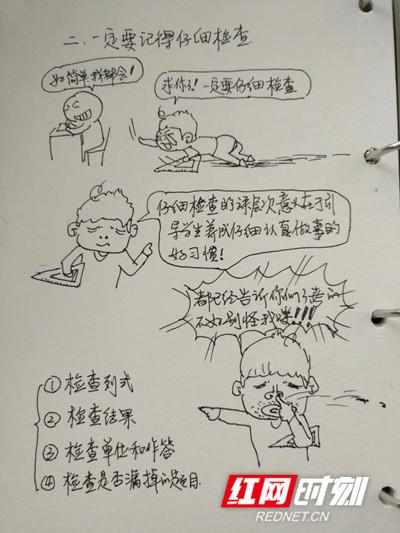 二.一定要记得仔细检查
好简单我都会!
求你了!一定要仔细检查
仔细检查的深层次意义在于引
导学生养成仔细认真做事的
好习惯!
都已经告诉你们了
不好别怪我哦!!!
① 检查列式
② 检查结果
③ 检查单位和作答
④ 检查是否漏掉的题目
红网时刻
REDNET.CN